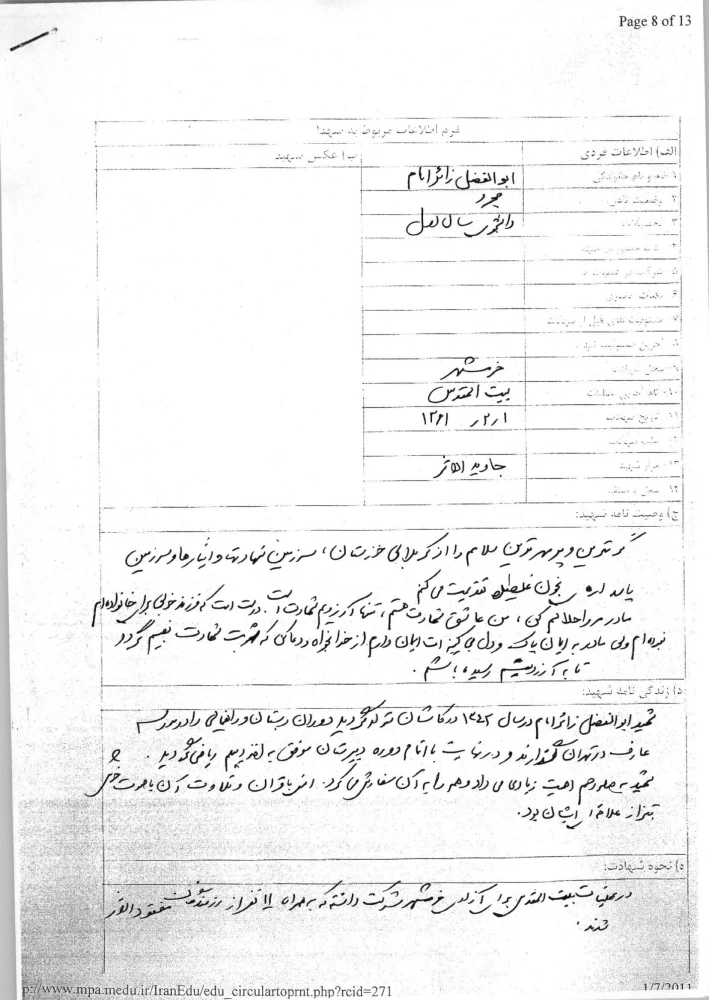 Page 8 of 13
فرم اطلاعات مربوط به شهدا
الف) اطلاعات فردی
ب) عکس شهید
۱ نام و نام خانوادگی
ابوالفضل زائر امام
۲ وضعیت تاهل
مجرد
۳
دانشجوی سال اول
۷ مسئولیت های قبل از شهادت
۸ آخرین مسئولیت شهید
۹ محل شهادت
خرمشهر
۱۰ نام آخرین عملیات
بیت المقدس
۱۱ تاریخ شهادت
۱ / ۲ / ۱۳۶۱
۱۳ مزار شهید
جاوید الاثر
۱۴
ج) وصیت نامه شهید:
گرمترین و پرمهرترین سلامم را از کربلای خوزستان، سرزمین شهادتها و ایثارها و سرزمین
بخون غلطیده تقدیمت می کنم
مادر مرا حلالم کن، من عاشق شهادت هستم، تنها آرزویم شهادت است. درست است که فرزند خوبی برای خانواده ام
نبوده ام ولی مادر به ایمان پاک و دل ات ایمان دارم از خدا بخواه و دعا کن که شربت شهادت نصیبم گردد
تا به آرزویم رسیده باشم.
د) زندگی نامه شهید:
شهید ابوالفضل زائر امام در سال ۱۳۴۲ در کاشان متولد گردید دوران دبستان و راهنمائی را در مدرسه
عارف در تهران گذراند و در نهایت با اتمام دوره دبیرستان موفق به اخذ دیپلم ریاضی گردید.
شهید به صله رحم اهمیت زیادی می داد و همه را به آن سفارش می کرد. انس با قرآن و تلاوت آن با صوت خوش
نیز از علاقه ایشان بود.
ه) نحوه شهادت:
در عملیات بیت المقدس برای آزادی خرمشهر شرکت داشته که به همراه ۱۱ نفر از رزمندگان مفقود الاثر
شدند.
p://www.mpa.medu.ir/IranEdu/edu_circulartoprnt.php?rcid=271
1/7/2011